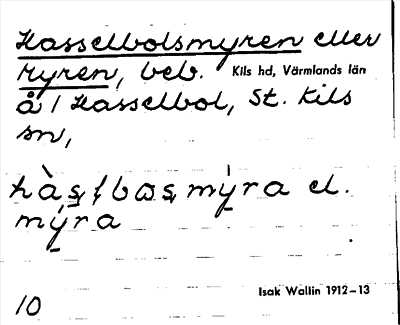 Hasselbolsmyren eller
Myren, beb. Kils hd, Värmlands län
å / Hasselbol, St. Kils
sn,
myra
10
Isak Wallin 1912–13